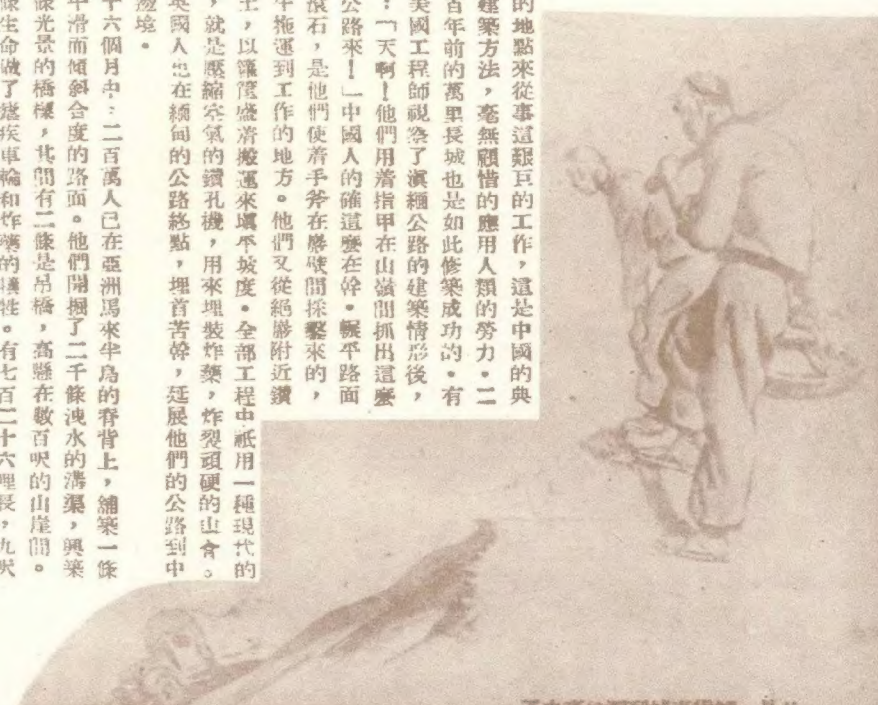 的地點來從事這艱巨的工作，這是中國的典
建築方法，毫無顧惜的應用人類的勞力。二
百年前的萬里長城也是如此修築成功的。有
美國工程師視察了滇緬公路的建築情形後，
：「天啊！他們用着指甲在山嶺間抓出這麼
公路來！」中國人的確這麼在幹。輾平路面
滾石，是他們使着手斧在巖壁間採鑿來的，
牛拖運到工作的地方。他們又從絕巖附近鑽
土，以籮筐盛着搬運來塡平坡度。全部工程中祇用一種現代的
，就是壓縮空氣的鑽孔機，用來埋裝炸藥，炸裂頑硬的山脊。
英國人也在緬甸的公路終點，埋首苦幹，廷展他們的公路到中
邊境。
十六個月中：二百萬人已在亞洲馬來半島的脊背上，舖築一條
平滑而傾斜合度的路面。他們開掘了二千條洩水的溝渠，興築
條光景的橋樑，其間有二條是吊橋，高懸在數百呎的山崖間。
條生命做了瘧疾車輪和炸藥的犧牲。有七百二十六哩長，九呎